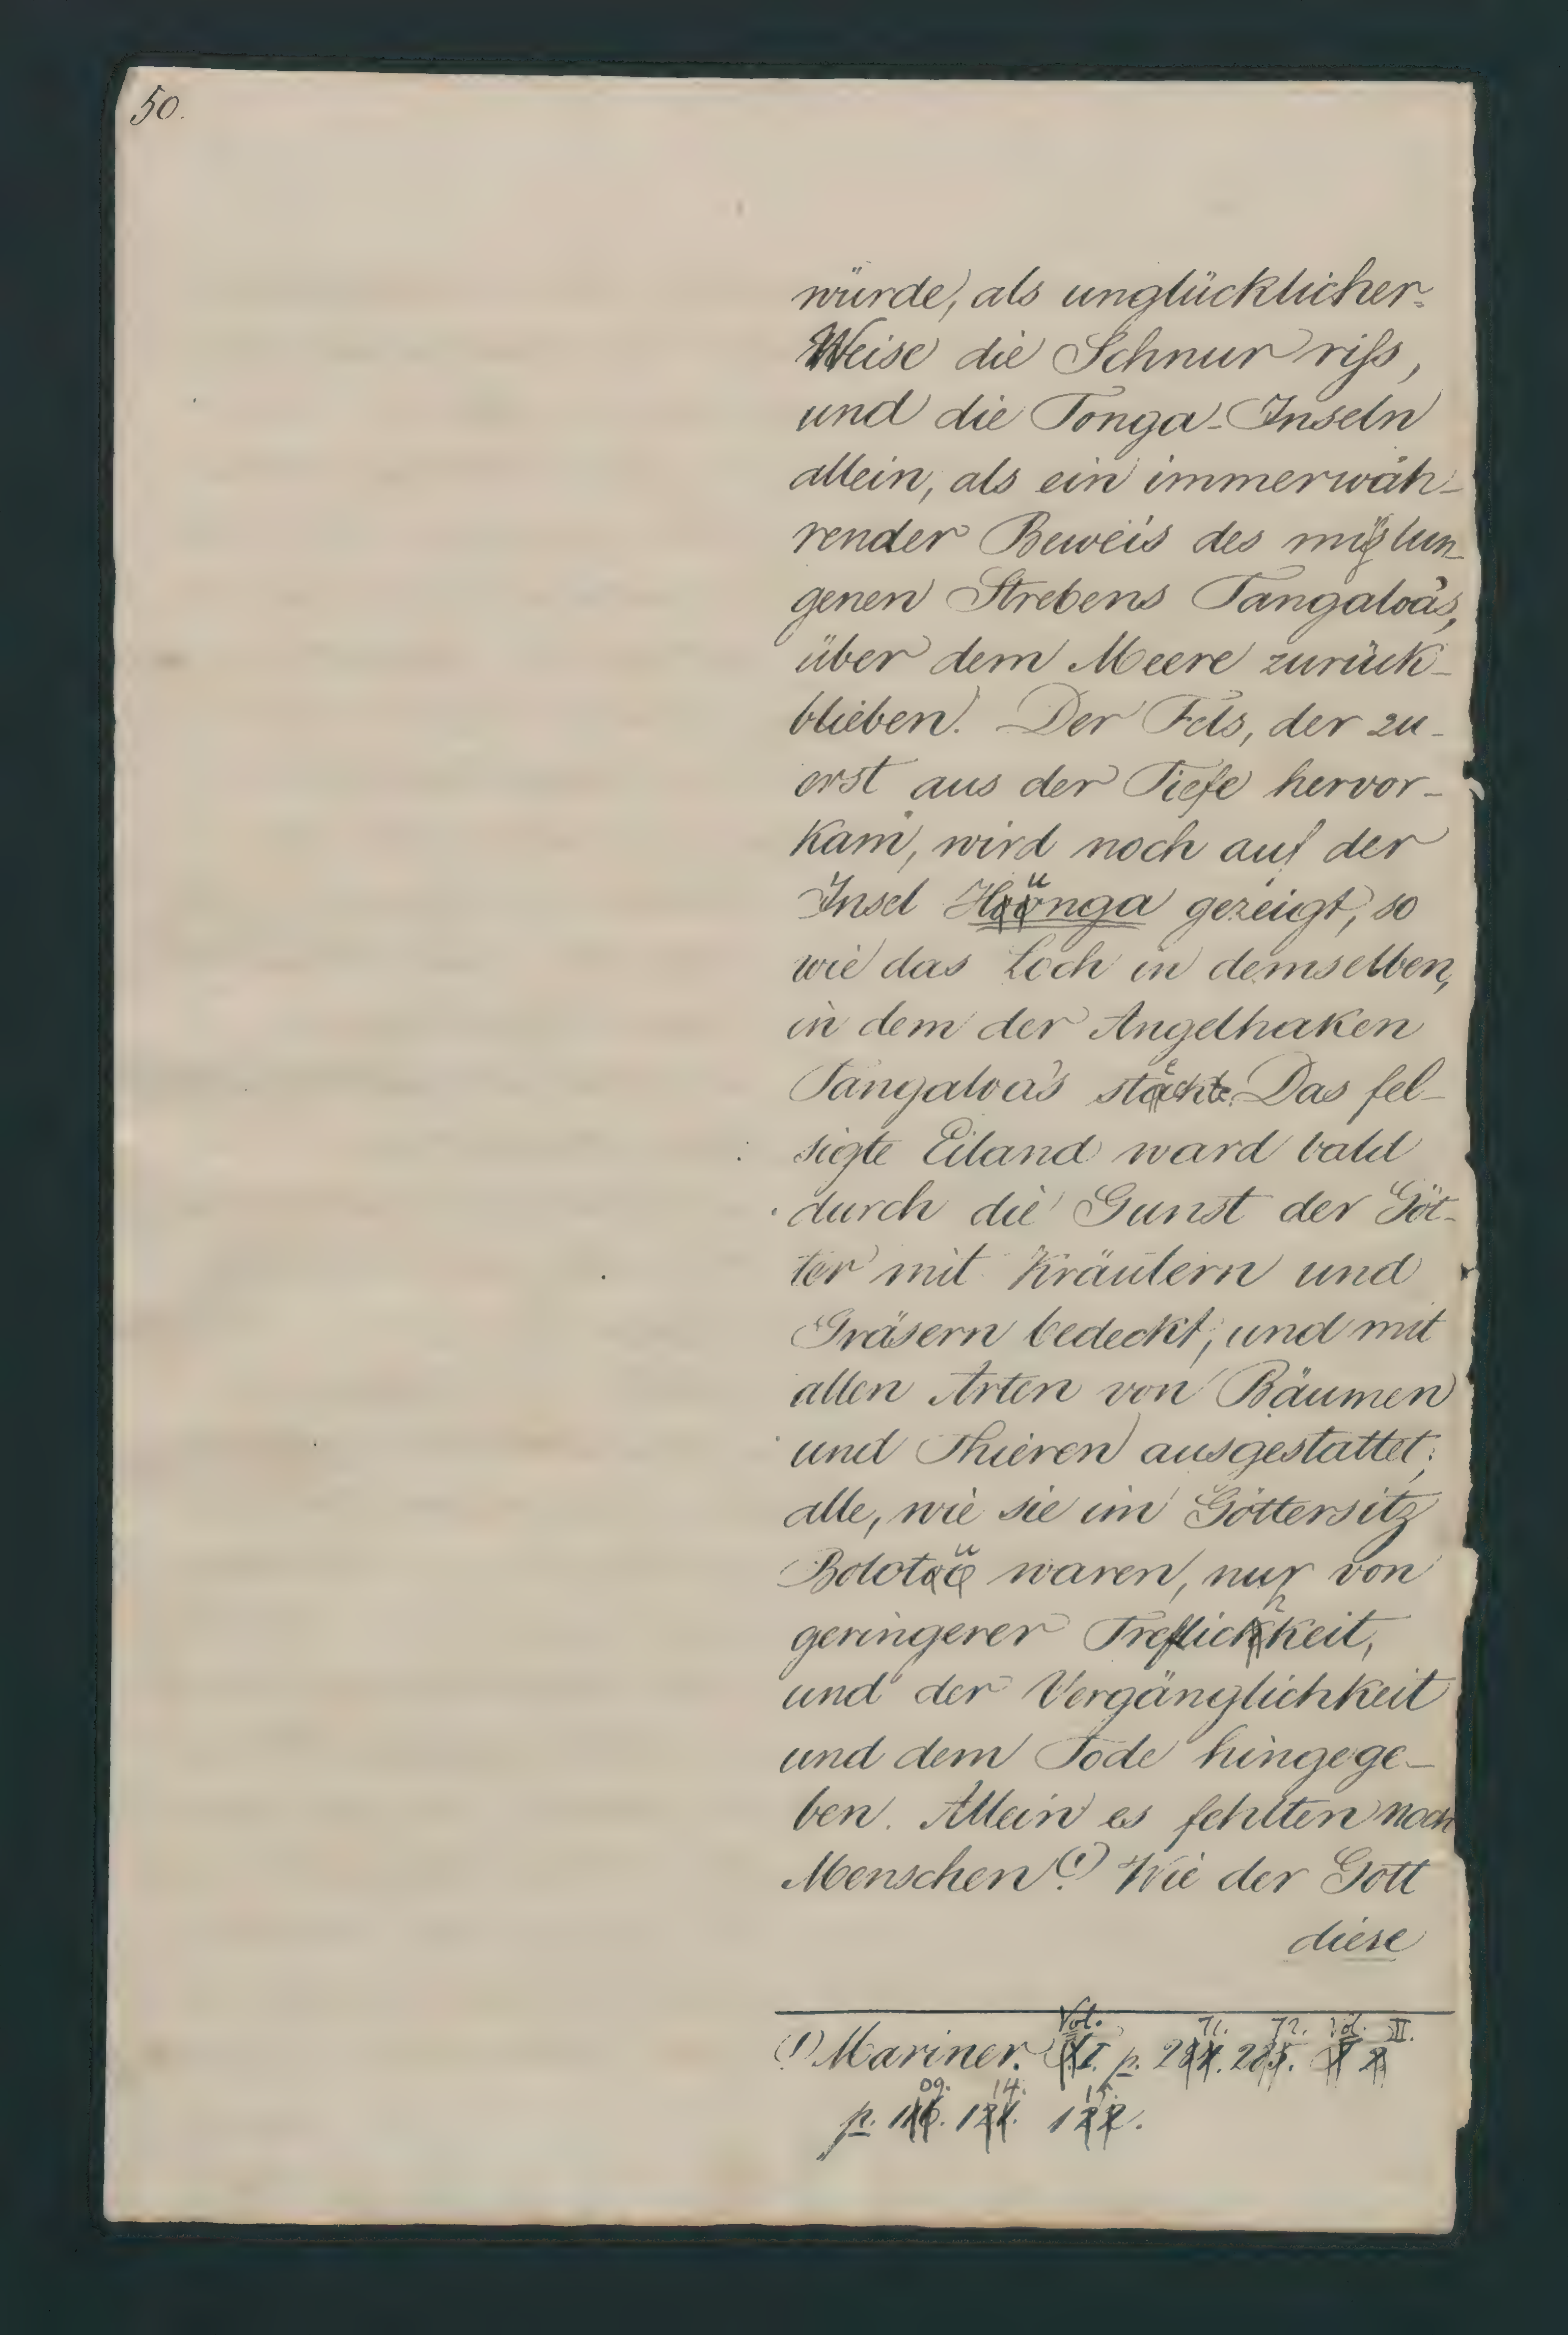 50.
würde, als unglücklicher-
Weise die Schnur riſs,
und die Tonga-Inseln
allein, als ein immerwäh-
render Beweis des mißlun-
genen Strebens Tangaloa's,
über dem Meere zurück-
blieben. Der Fels, der zu-
erst aus der Tiefe hervor-
kam, wird noch auf der
Insel Hünga gezeigt, so
wie das Loch in demselben,
in dem der Angelhaken
Tangaloa's steckte. Das fel-
sigte Eiland ward bald
durch die Gunst der Göt-
ter mit Kräutern und
Gräsern bedeckt, und mit
allen Arten von Bäumen
und Thieren ausgestattet;
alle, wie sie im Göttersitz
Bolotü waren, nur von
geringerer Treflichkeit,
und der Vergänglichkeit
und dem Tode hingege-
ben. Allein es fehlten noch
Menschen.(1) Wie der Gott
diese
(1) Mariner. Vol. I. p. 271. 272. Vol. II.
p. 109. 114. 115.